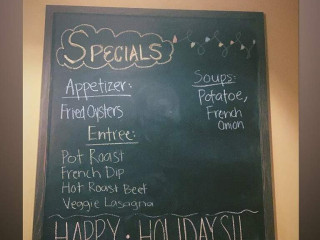 SPECIALS
Appetizer:
Fried Oysters
Soups:
Potatoe,
French
Onion
Entree:
Pot Roast
French Dip
Hot Roast Beef
Veggie Lasagna
HAPPY • HOLIDAYS!!